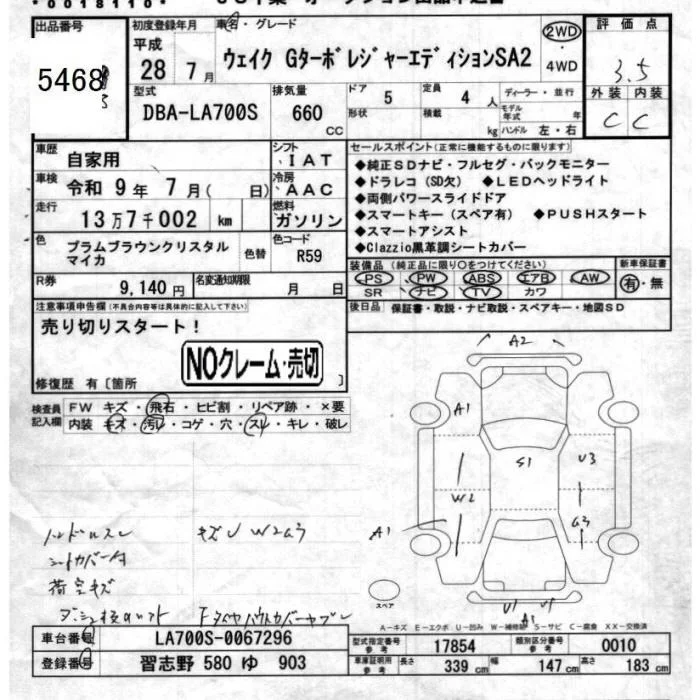 出品番号
5468
初度登録年月
平成
28 年 7 月
車名・グレード
ウェイク GターボレジャーエディションSA2
2WD
・
4WD
評価点
3.5
外装 内装
C C
型式
DBA-LA700S
排気量
660
CC
ドア
5
形状
定員
4 人
積載
kg
ディーラー・並行
モデル
年式 年
ハンドル 左・右
車歴
自家用
シフト
IAT
車検
令和 9年 7月( 日)
冷房
AAC
走行
13万7千002 km
燃料
ガソリン
色
プラムブラウンクリスタル
マイカ
色替
色コード
R59
R券
9,140 円
名変通知期限
月 日
セールスポイント(正常に機能するものに限ります)
◆純正SDナビ・フルセグ・バックモニター
◆ドラレコ(SD欠) ◆LEDヘッドライト
◆両側パワースライドドア
◆スマートキー(スペア有) ◆PUSHスタート
◆スマートアシスト
◆Clazzio黒革調シートカバー
装備品(純正品に限り○をつけてください)
PS PW ABS エアB AW
SR ナビ TV カワ
新車保証書
有・無
後日品 保証書・取説・ナビ取説・スペアキー・地図SD
注意事項申告欄(不具合内容等は具体的に記入して下さい)
売り切りスタート!
NOクレーム・売切
修復歴 有〔箇所 〕
検査員
記入欄
FW キズ・飛石・ヒビ割・リペア跡・×要
内装 キズ・汚れ・コゲ・穴・スレ・キレ・破レ
A2
A1
S1
U3
W2
A1
a3
ハンドルスレ
キズU W2a3
シートカバー付
荷室キズ
スペア
U1
A1
A-キズ E-エクボ U-凹み W-補修跡 S-サビ C-腐食 XX-交換済
車台番号
LA700S-0067296
登録番号
習志野 580 ゆ 903
型式指定番号
参考
17854
類別区分番号
参考
0010
車庫証明用
参考
長さ 339 cm 幅 147 cm 高さ 183 cm